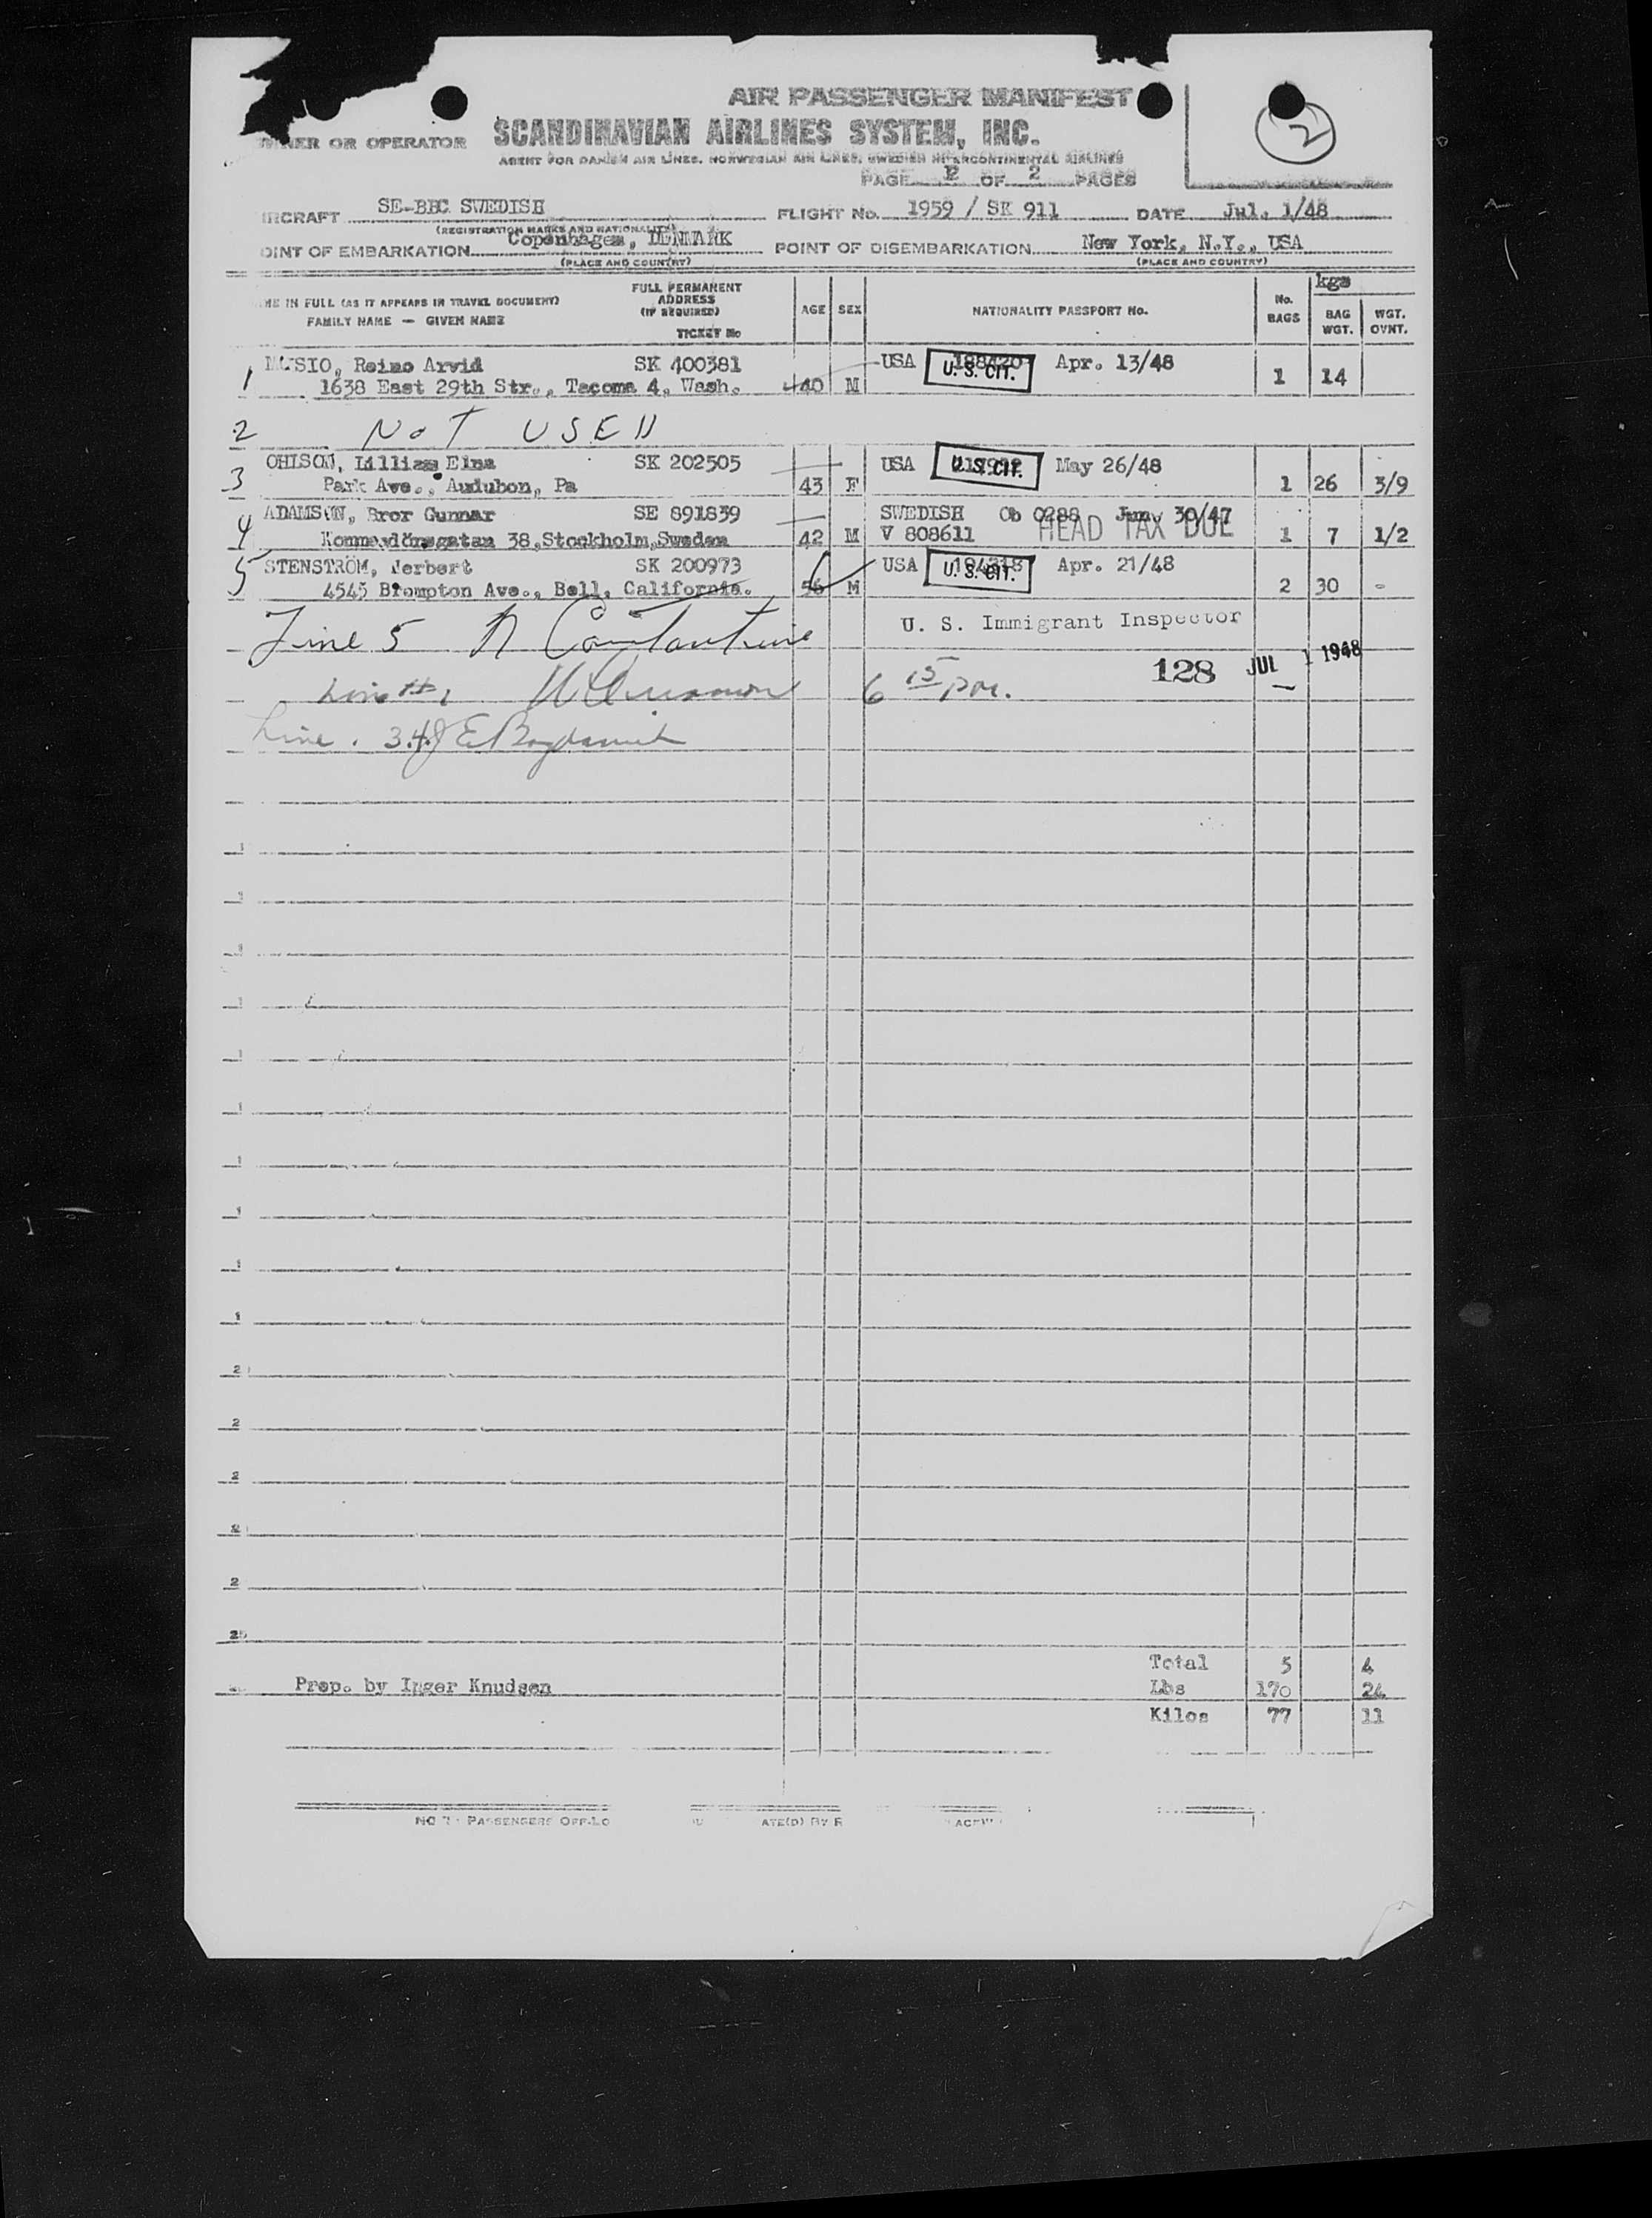 AIR PASSENGER MANIFEST
2
OWNER OR OPERATOR SCANDINAVIAN AIRLINES SYSTEM, INC.
AGENT FOR DANISH AIR LINES, NORWEGIAN AIR LINES, SWEDISH INTERCONTINENTAL AIRLINES
PAGE 2 OF 2 PAGES
IRCRAFT SE-BBC SWEDISH FLIGHT No. 1959 / SK 911 DATE Jul. 1/48
(REGISTRATION MARKS AND NATIONALITY)
OINT OF EMBARKATION Copenhagen, DENMARK POINT OF DISEMBARKATION New York, N.Y., USA
(PLACE AND COUNTRY) (PLACE AND COUNTRY)
ME IN FULL (AS IT APPEARS IN TRAVEL DOCUMENT)
FAMILY NAME — GIVEN NAME
FULL PERMANENT ADDRESS (IF REQUIRED)
TICKET No
AGE SEX NATIONALITY PASSPORT No. No. BAGS kgs BAG WGT. WGT. OVNT.
1 SIO, Reino Arvid SK 400381 USA U. S. CIT. Apr. 13/48
1638 East 29th Str., Tacoma 4, Wash. 40 M 1 14
2 NOT USED
3 OHLSON, Lillian Elna SK 202505 USA U. S. CIT. May 26/48
Park Ave., Audubon, Pa 43 F 1 26 3/9
4 ADAMSON, Bror Gunnar SE 891839 SWEDISH Ob 0288 30/47
Kommendörsgatan 38, Stockholm, Sweden 42 M V 808611 HEAD TAX DUE 1 7 1/2
5 STENSTRÖM, Herbert SK 200973 USA U. S. CIT. Apr. 21/48
4545 Brompton Ave., Bell, California. 56 M 2 30 -
U. S. Immigrant Inspector
Line 5 N Constantine
128 JUL 1 1948
6 15 pm.
Line 3.4
1
1
1
1
1
1
1
1
1
1
2
2
2
2
2
25
Total 5 4
Prep. by Inger Knudsen Lbs 170 24
Kilos 77 11
PASSENGERS OFF-LO ATE(D) BY